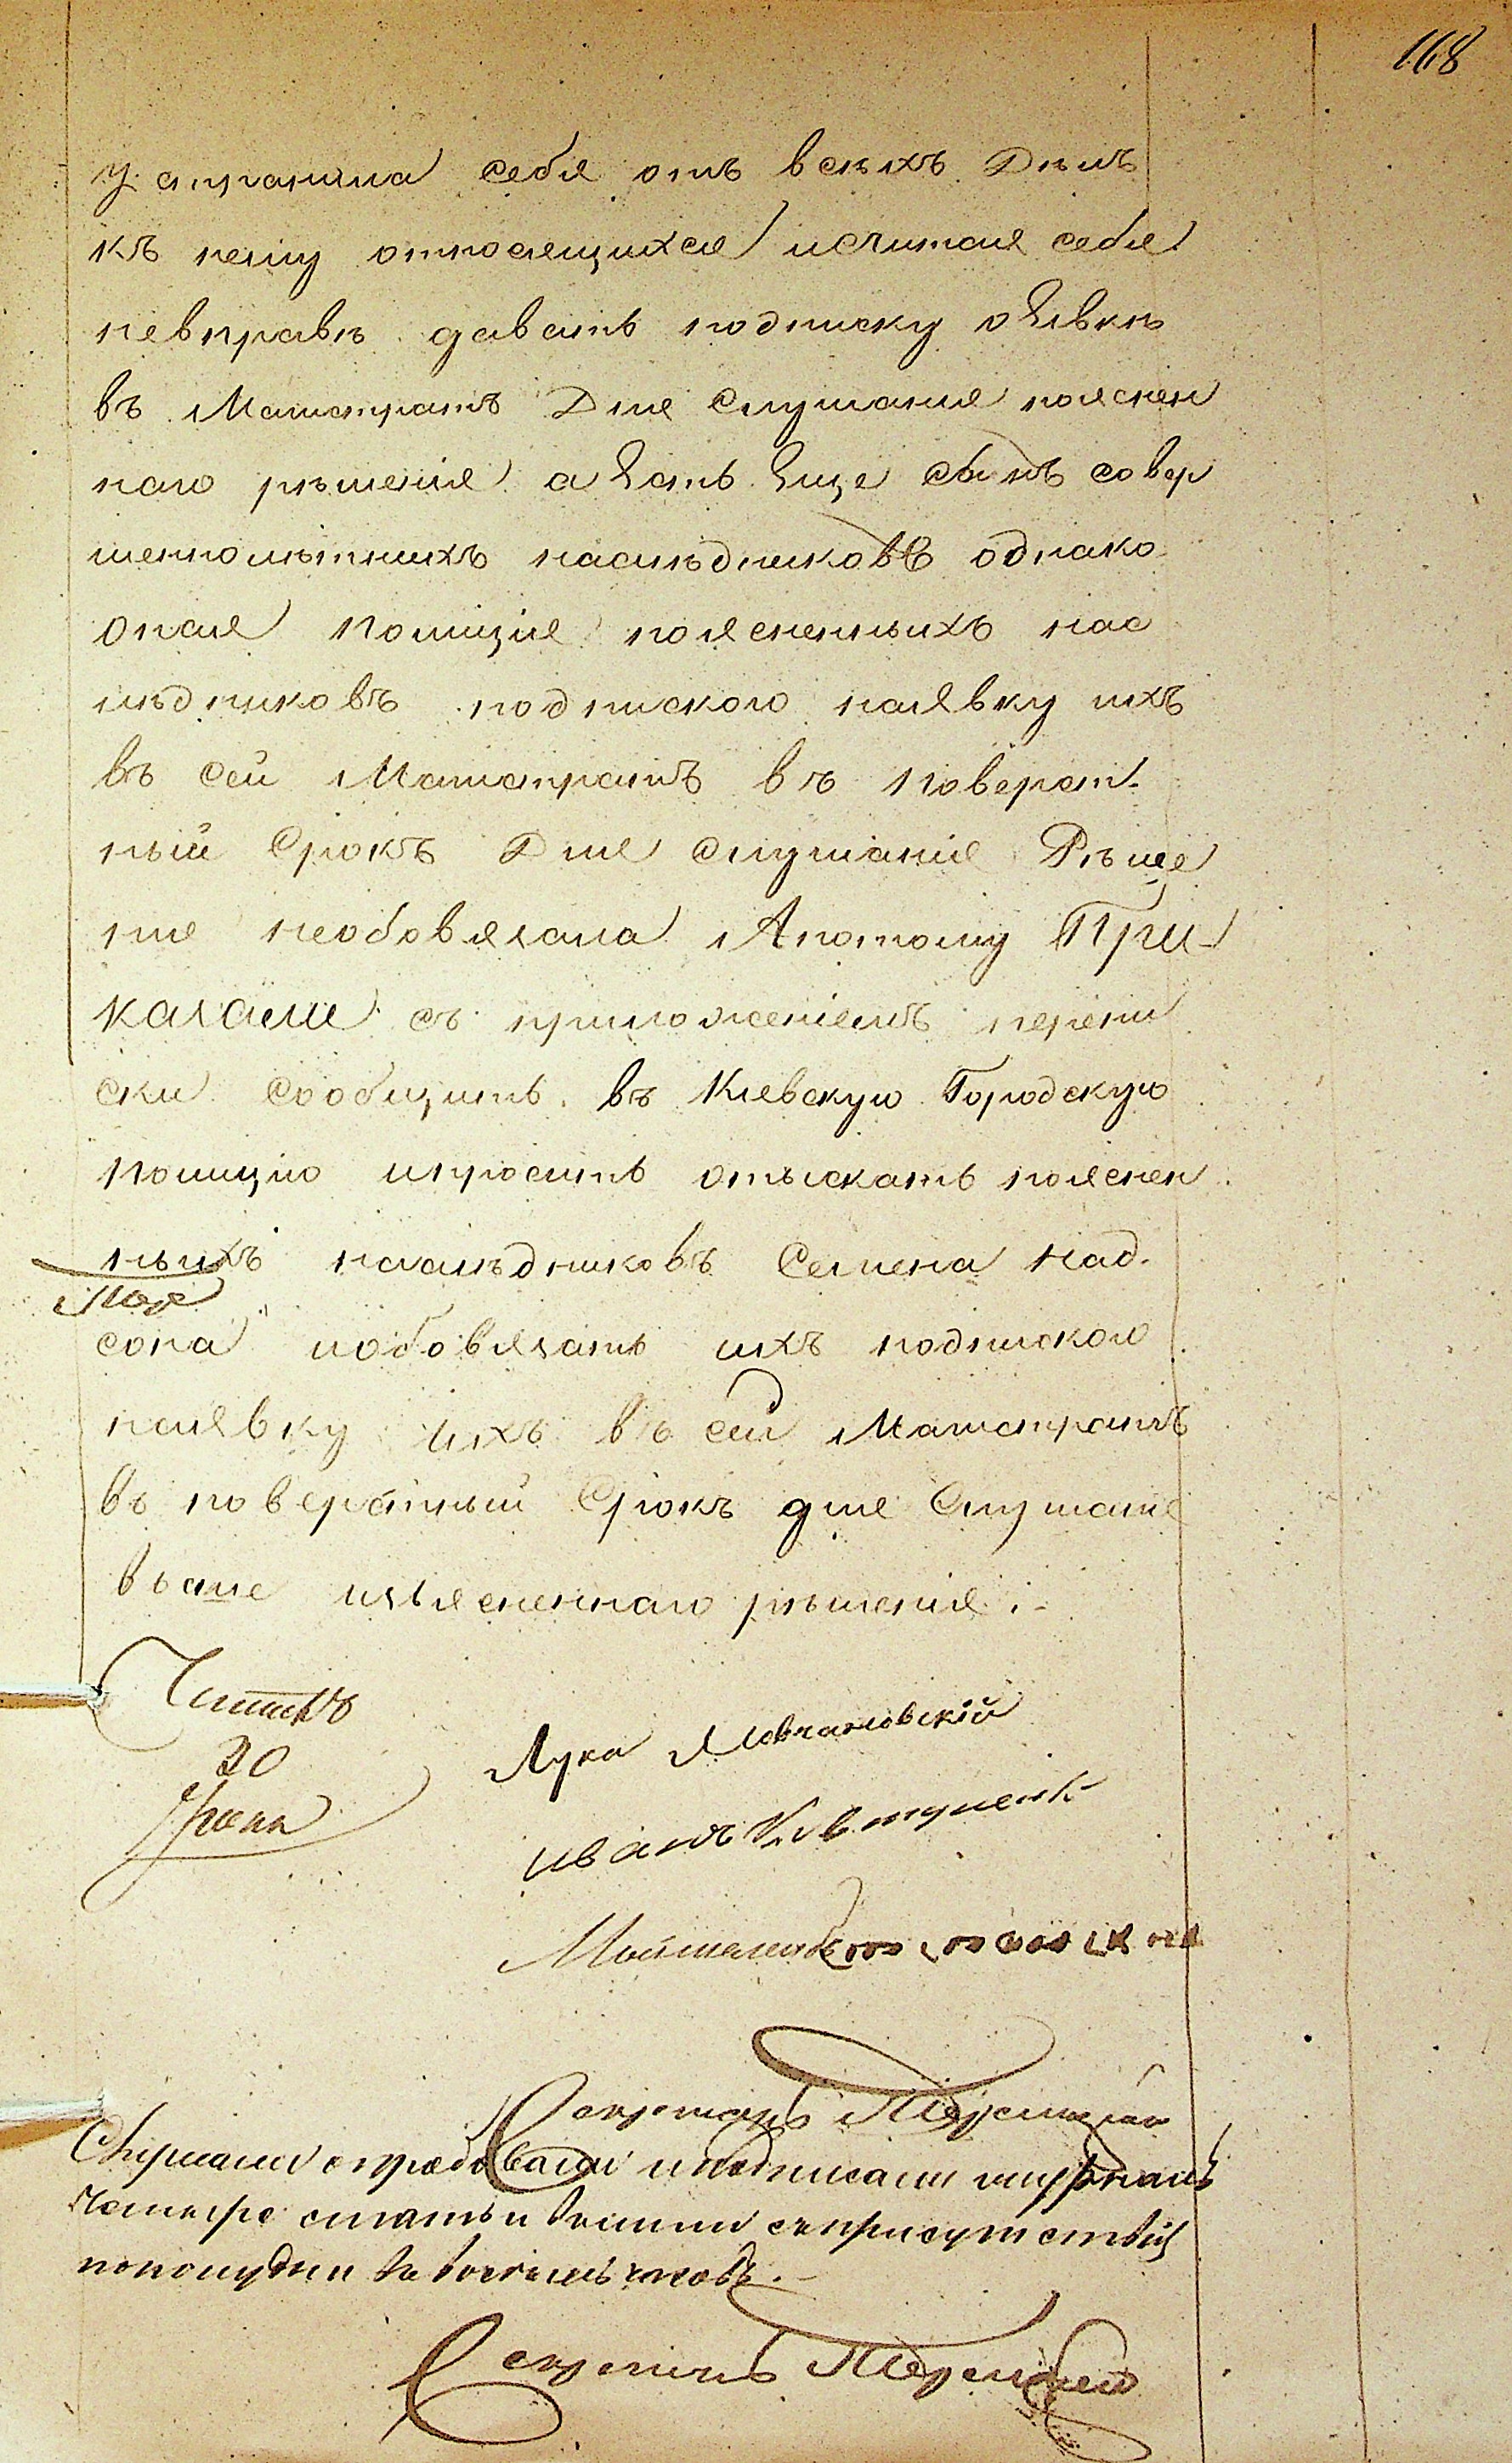 168
устранила себя отъ всѣхъ Дѣлъ
къ нему относящихся исчитая себя
невправѣ давать подписку оявкѣ
въ Магистратъ Для слушания пояснен
наго рѣшения а есть еще сынъ совер
шеннолѣтнихъ наслѣдниковъ однако
оная полиция поясненныхъ нас
лѣдниковъ подпискою наявку ихъ
въ сей Магистратъ въ поверст-
ный Срокъ Для слушания Рѣше
ние необовязала Апотому При-
казали съ приложениемъ перепи
ски сообщить въ Киевскую Городскую
полицию ипросить отыскать пояснен
ныхъ наслѣдниковъ Семена Над-
сона иобовязать ихъ подпискою
наявку ихъ въ сей Магистратъ
въ поверстный Срокъ для Слушания
выше изъясненнаго рѣшения :-
Читалъ
30
Лука Мовчановский
иванъ Евтушенк
Секретарь
Слушали и подписали журналъ
четыре статьи вышли съ присутствия
пополудни в часовъ.-
Секретарь